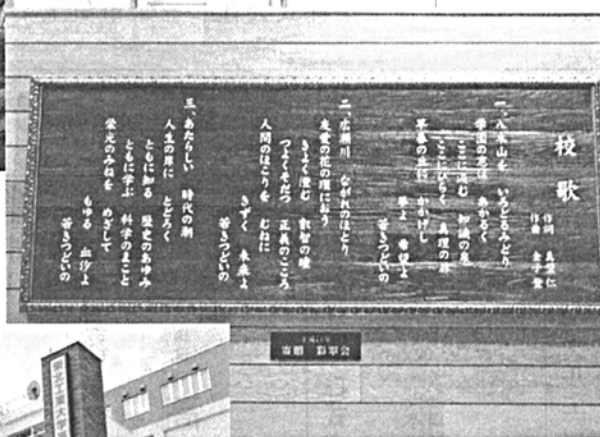 校歌
作詞 真壁仁
作曲 金子登
一、八木山を いろどるみどり
学園の窓は あかるく
ここに汲む 知識の泉
ここにひらく 真理の扉
早春の丘に かかげし
夢よ 希望よ
若きつどいの
二、広瀬川 ながれのほとり
友愛の花の環に匂う
きよく澄む 叡智の瞳
つよくそだつ 正義のこころ
人間のほこりを むねに
きずく 未来よ
若きつどいの
三、あたらしい 時代の潮
人生の岸に とどろく
ともに知る 歴史のあゆみ
ともに学ぶ 科学のまこと
栄光のみねを めざして
もゆる 血汐よ
若きつどいの
寄贈 彩翠会
東北工業大学